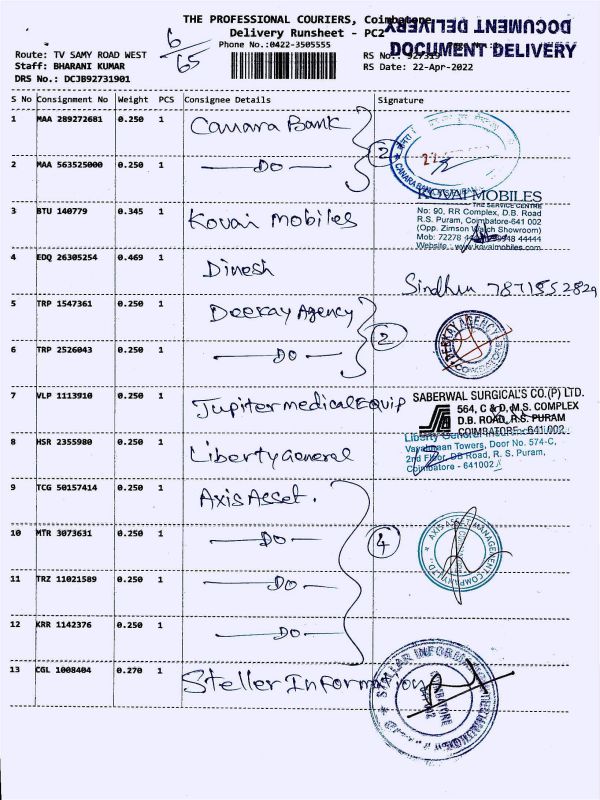 THE PROFESSIONAL COURIERS, Coimbatore
Delivery Runsheet - PC2
DOCUMENT DELIVERY
Phone No.:0422-3505555
6/65
Route: TV SAMY ROAD WEST
RS No.:
DOCUMENT DELIVERY
Staff: BHARANI KUMAR
RS Date: 22-Apr-2022
DRS No.: DCJB92731901
S No Consignment No Weight PCS Consignee Details Signature
1 MAA 289272681 0.250 1 Canara Bank
2
2 MAA 563525000 0.250 1 DO
KOVAI MOBILES
THE SERVICE CENTRE
3 BTU 140779 0.345 1 Kovai Mobiles
No: 90, RR Complex, D.B. Road
R.S. Puram, Coimbatore-641 002
(Opp. Zimson Watch Showroom)
Mob: 72278 44444
Website : www.kovaimobiles.com
4 EDQ 26305254 0.469 1 Dinesh
Sindhu
5 TRP 1547361 0.250 1 Deekay Agency
2
DEEKAY AGENCY
COIMBATORE
6 TRP 2526043 0.250 1 DO
7 VLP 1113910 0.250 1 Jupiter medical Equip
SABERWAL SURGICAL'S CO.(P) LTD.
564, C & D, M.S. COMPLEX
D.B. ROAD, R.S. PURAM
COIMBATORE - 641 002
8 HSR 2355980 0.250 1 Liberty General
Liberty General
Vayalimaan Towers, Door No. 574-C,
2nd Floor, DB Road, R. S. Puram,
Coimbatore - 641002
9 TCG 50157414 0.250 1 Axis Asset.
10 MTR 3073631 0.250 1 DO
4
AXIS ASSET MANAGEMENT COMPANY LTD
11 TRZ 11021589 0.250 1 DO
12 KRR 1142376 0.250 1 DO
13 CGL 1008404 0.270 1 Steller Information
STELLAR INFORMATION
COIMBATORE